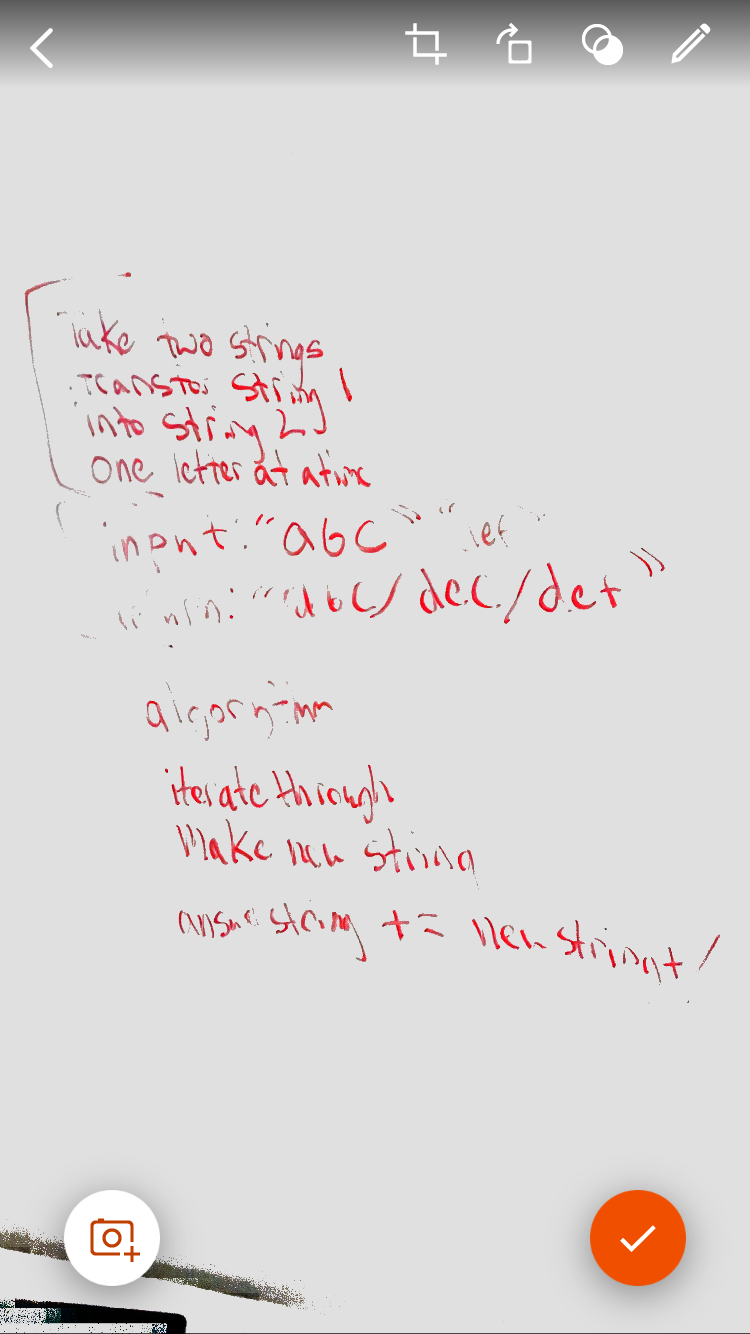 Take two strings
transfor string 1
into string 2
one letter at a time
input: "abc" "def"
: "abc/dec/def"
algorythm
iterate through
Make new string
answe string += new string + /